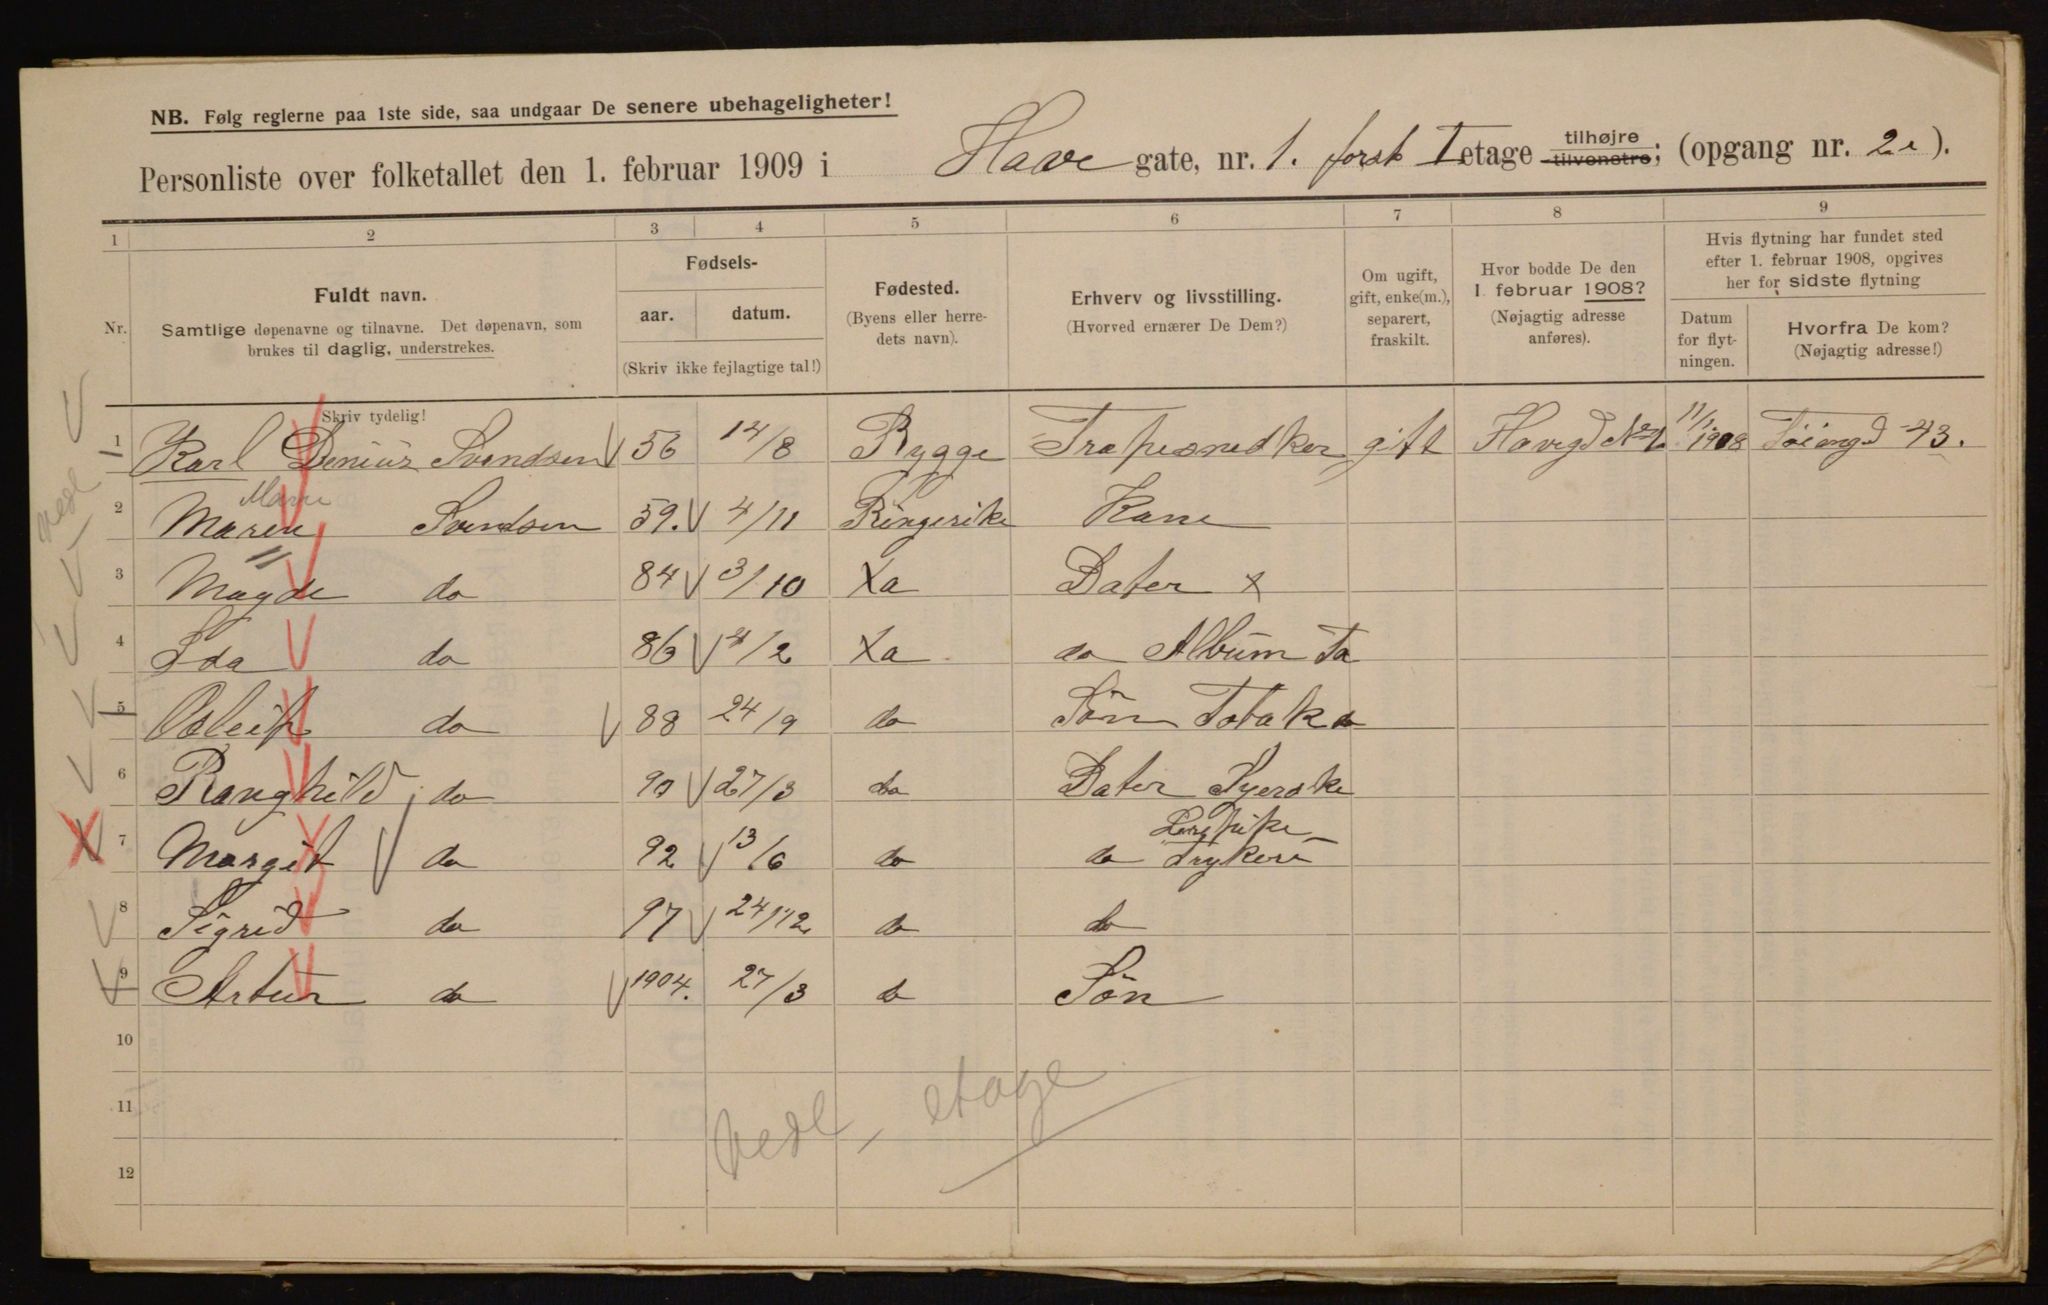 NB. Følg reglerne paa 1ste side, saa undgaar De senere ubehageligheter!
Personliste over folketallet den 1. februar 1909 i Have gate, nr. 1. forst I etage tilhøjre tilvenstre; (opgang nr. 2.).
1 2 3 4 5 6 7 8 9
Nr.
Fuldt navn.
Samtlige døpenavne og tilnavne. Det døpenavn, som
brukes til daglig, understrekes.
Fødsels-
aar. datum.
(Skriv ikke fejlagtige tal!)
Fødested.
(Byens eller herre-
dets navn).
Erhverv og livsstilling.
(Hvorved ernærer De Dem?)
Om ugift,
gift, enke(m.),
separert,
fraskilt.
Hvor bodde De den
1. februar 1908?
(Nøjagtig adresse
anføres).
Hvis flytning har fundet sted
efter 1. februar 1908, opgives
her for sidste flytning
Datum
for flyt-
ningen.
Hvorfra De kom?
(Nøjagtig adresse!)
Skriv tydelig!
1 Karl Svendsen 56 14/8 Rygge gift 11/1 1908 43.
2 Maren Svendsen 59. 4/11 Ringerike Kane
3 Magda do 84 3/10 Dater x
4 Ida do 86 4/2 do Album
5 do 88 24/9 do Sön Tobak
6 Ranghild do 90 27/3 do Dater Syerske
7 Margit do 92 13/6 do do Trykeri
8 Sigrid do 97 24/12 do do
9 Artur do 1904. 27/3 do Sön
10
11
12
vedl. etage